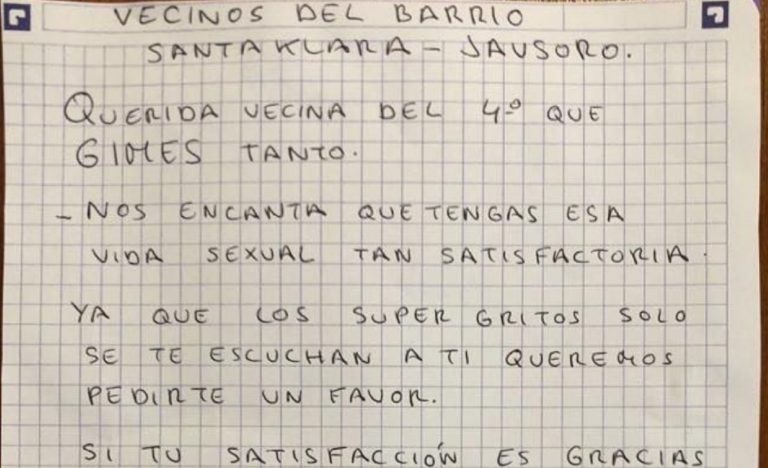 VECINOS DEL BARRIO
SANTA KLARA - JAUSORO.
QUERIDA VECINA DEL 4º QUE
GIMES TANTO.
- NOS ENCANTA QUE TENGAS ESA
VIDA SEXUAL TAN SATISFACTORIA.
YA QUE LOS SUPER GRITOS SOLO
SE TE ESCUCHAN A TI QUEREMOS
PEDIRTE UN FAVOR.
SI TU SATISFACCIÓN ES GRACIAS